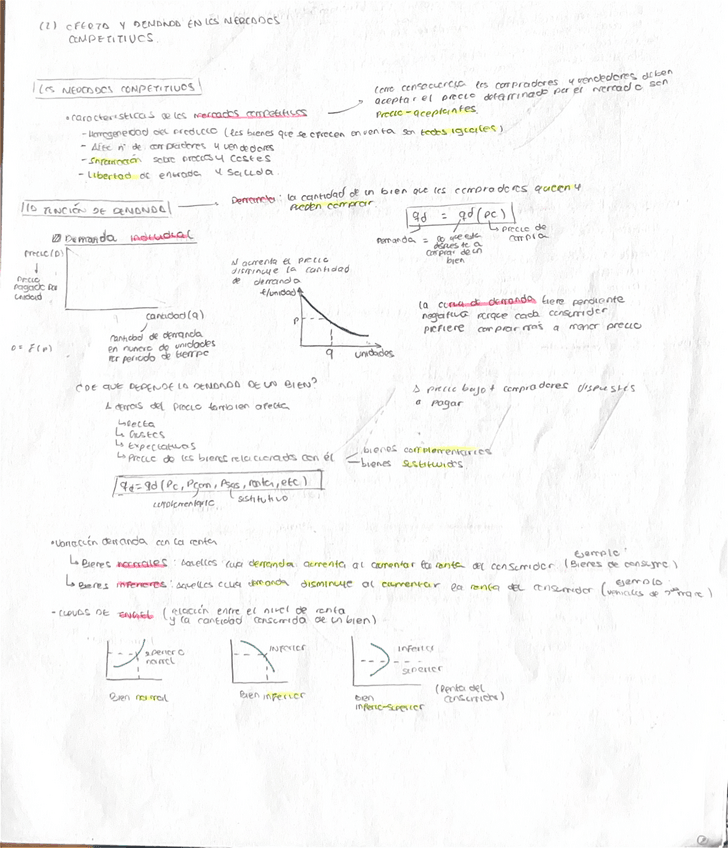 (2) OFERTA Y DEMANDA EN LOS MERCADOS
COMPETITIVOS.
LOS MERCADOS COMPETITIVOS
• Características de los mercados competitivos
Como consecuencia los compradores y vendedores deben
aceptar el precio determinado por el mercado son
Precio-aceptantes.
- Homogeneidad del producto (los bienes que se ofrecen en venta son todos iguales)
- Alto nº de compradores y vendedores
- Información sobre precios y costes
- Libertad de entrada y salida.
LA FUNCIÓN DE DEMANDA
Demanda: la cantidad de un bien que los compradores quieren y
pueden comprar.
Demanda individual
qd = qd (Pc)
precio de
compra
Demanda = lo que está
dispuesto a
comprar de un
bien
Precio (P)
Precio
pagado por
unidad
cantidad (q)
cantidad de demanda
en número de unidades
por periodo de tiempo
D = F(P)
Si aumenta el precio
disminuye la cantidad
de demanda
€/unidad
P
q
unidades
la curva de demanda tiene pendiente
negativa porque cada consumidor
prefiere comprar más a menor precio
¿DE QUE DEPENDE LA DEMANDA DE UN BIEN?
Δ precio bajo + compradores dispuestos
a pagar
Además del precio también afecta
Renta
Gustos
Expectativas
Precio de los bienes relacionados con él
bienes complementarios
bienes sustitutivos
qd = qd (Pc, Pcom, Psus, renta, etc)
complementario
sustitutivo
• Variación demanda con la renta
Bienes normales: Aquellos cuya demanda aumenta al aumentar la renta del consumidor (Bienes de consumo)
ejemplo:
Bienes inferiores: Aquellos cuya demanda disminuye al aumentar la renta del consumidor (vehículos de 2ª mano)
ejemplo:
- CURVAS DE ENGEL (relación entre el nivel de renta
y la cantidad consumida de un bien)
superior o
normal
Bien normal
inferior
Bien inferior
inferior
superior
Bien
inferior-superior
(Renta del
consumidor)